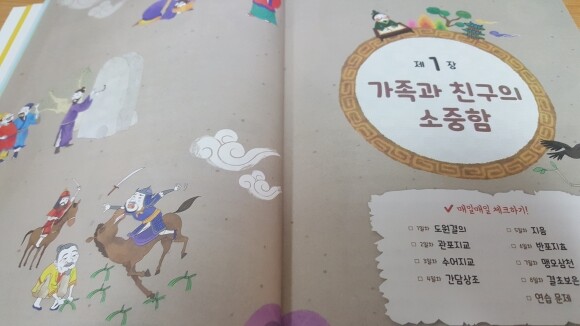 제 1 장
가족과 친구의
소중함
매일매일 체크하기!
1일차 도원결의
2일차 관포지교
3일차 수어지교
4일차 간담상조
5일차 지음
6일차 반포지효
7일차 맹모삼천
8일차 결초보은
연습 문제